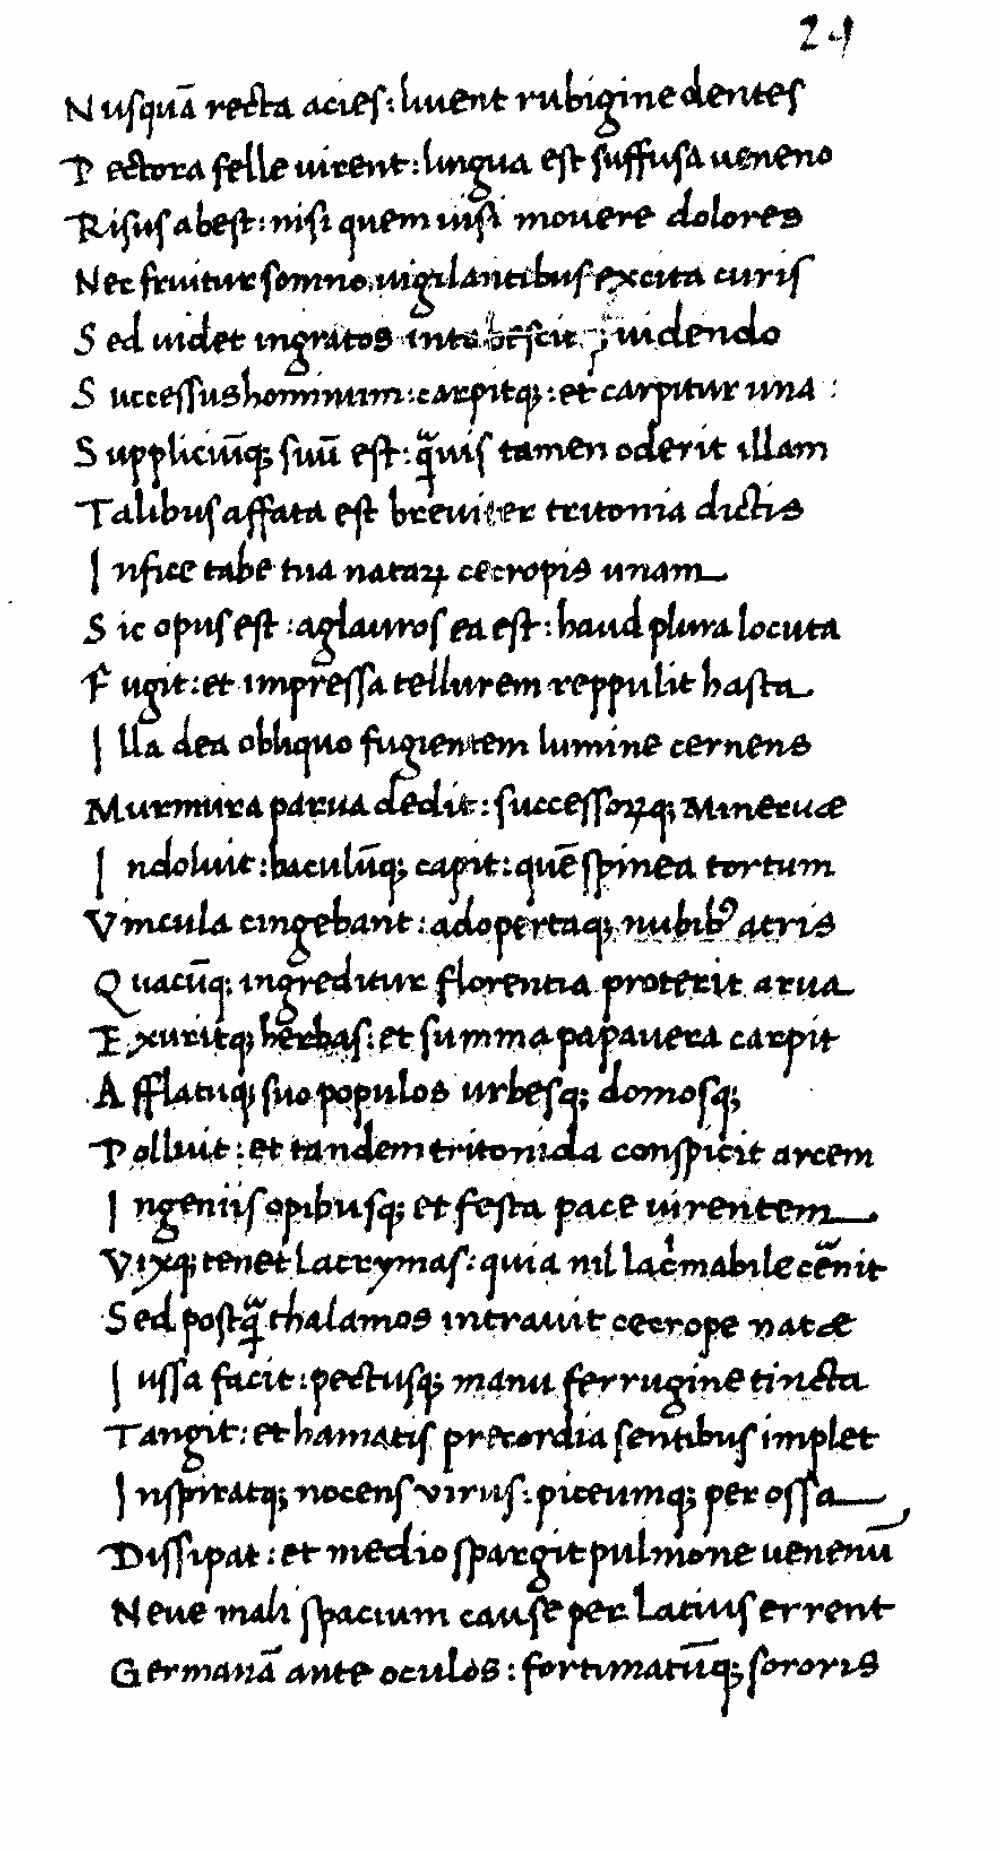 24
Nusquā recta acies: liuent rubigine dentes
Pectora felle uirent: lingua est suffusa ueneno
Risus abest: nisi quem uisi mouere dolores
Nec fruitur somno uigilantibus excita curis
Sed uidet ingratos intabescit uidendo
Successus hominum: carpitq; et carpitur una:
Suppliciūq; suū est: quāuis tamen oderit illam
Talibus affata est breuiter tritonia dictis
Infice tabe tua nataꝝ cecropis unam
Sic opus est: aglauros ea est: haud plura locuta
Fugit: et impressa tellurem reppulit hasta
Illa dea obliquo fugientem lumine cernens
Murmura parua dedit: successoꝝq; Mineruæ
Indoluit: baculūq; capit: quē spinea tortum
Vincula cingebant: adopertaq; nubibꝰ atris
Quacūq; ingreditur florentia proterit arua
Exuritq; herbas: et summa papauera carpit
Afflatuq; suo populos urbesq; domosq;
Polluit: et tandem tritonida conspicit arcem
Ingeniis opibusq; et festa pace uirentem
Vixq; tenet lacrymas: quia nil lacͥmabile cēnit
Sed postqᷓ thalamos intrauit cecrope natæ
Iussa facit: pectusq; manu ferrugine tincta
Tangit: et hamatis precordia sentibus implet
Inspiratq; nocens virus: piceumq; per ossa
Dissipat: et medio spargit pulmone uenenū
Neue mali spacium cause per latius errent
Germanā ante oculos: fortunatūq; sororis